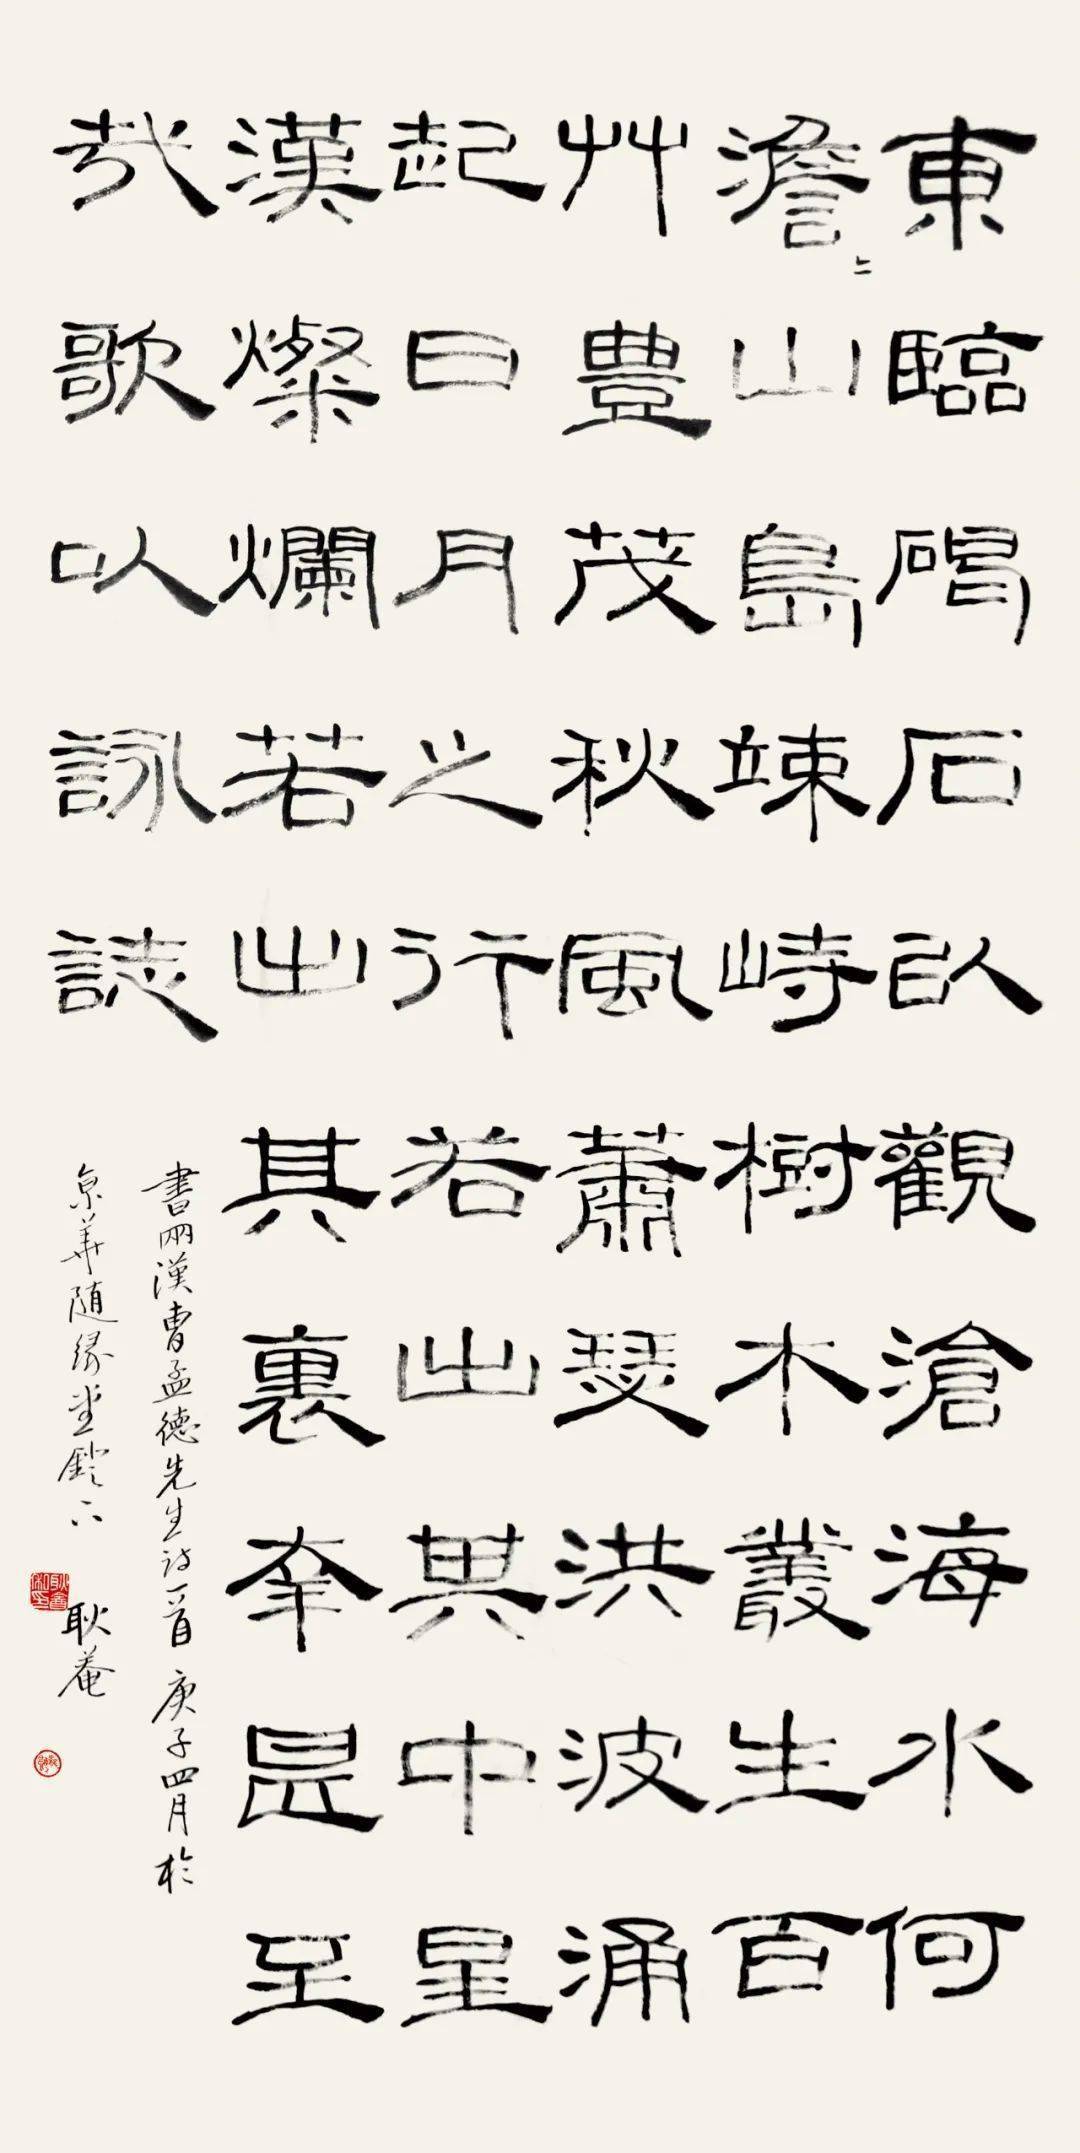 東臨碣石以觀滄海水何
澹〻山島竦峙樹木叢生百
艸豊茂秋風蕭瑟洪波涌
起日月之行若出其中星
漢燦爛若出其裏幸甚至
哉歌以詠誌
書兩漢曹孟德先生詩一首 庚子四月於
京華随緣堂鐙下 耿菴